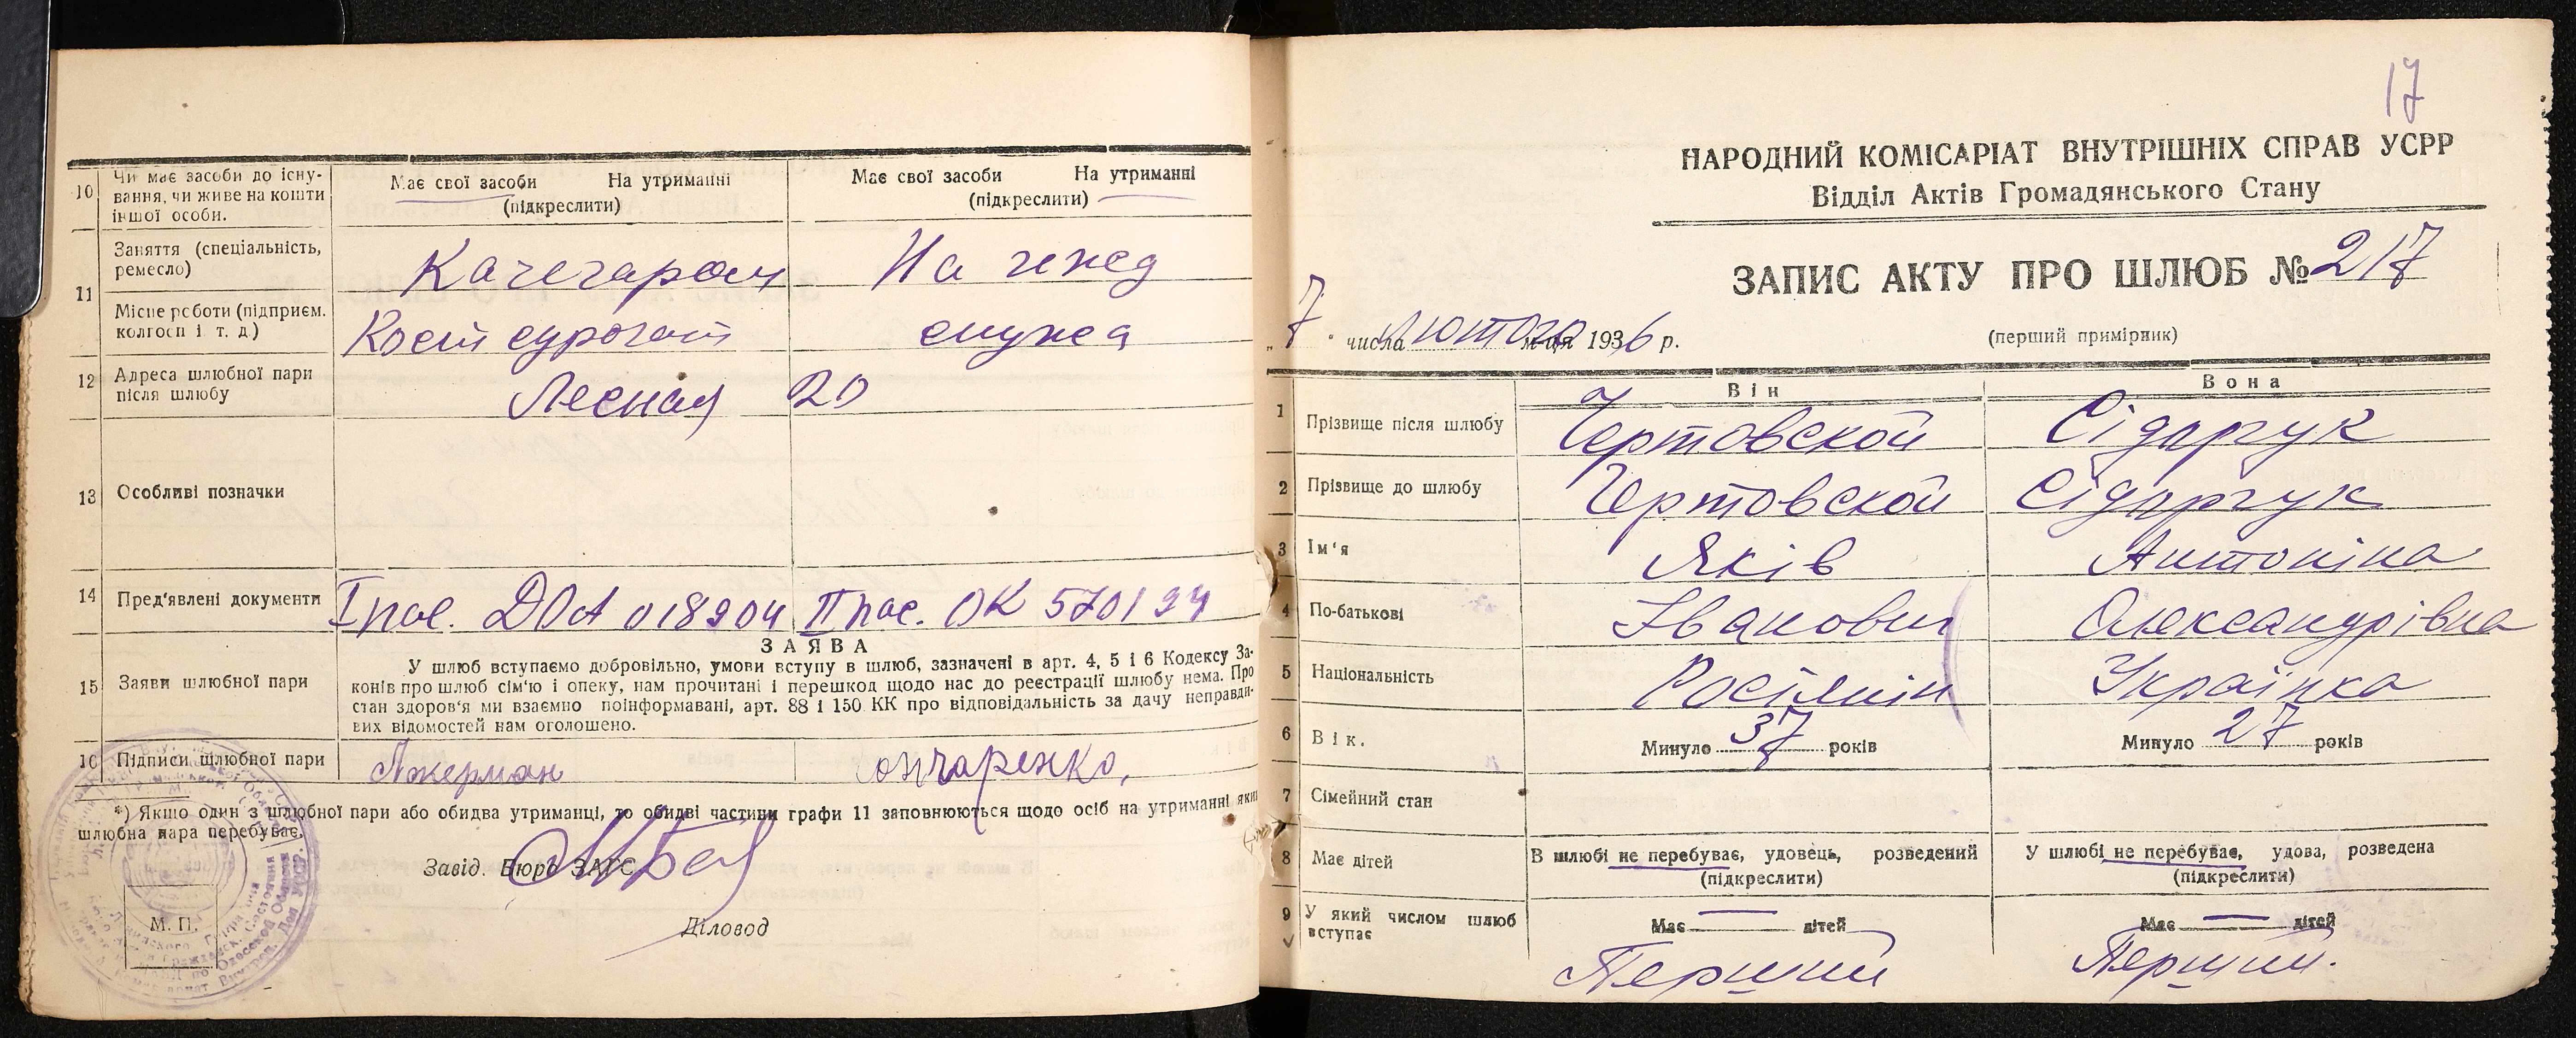 10
Чи має засоби до існу-
вання, чи живе на кошти
іншої особи.
Має свої засоби На утриманні
(підкреслити)
Має свої засоби На утриманні
(підкреслити)
11
Заняття (спеціальність,
ремесло)
Качегаром
На ижед
Місце роботи (підприєм.
колгосп і т. д.)
Кост сурогат
служа
12
Адреса шлюбної пари
після шлюбу
Лесная 20
13
Особливі позначки
14
Пред'явлені документи
I пас. ДОА 018904
II пас. ОК 570194
ЗАЯВА
15
Заяви шлюбної пари
У шлюб вступаємо добровільно, умови вступу в шлюб, зазначені в арт. 4, 5 і 6 Кодексу За-
конів про шлюб сім'ю і опеку, нам прочитані і перешкод щодо нас до реєстрації шлюбу нема. Про
стан здоров'я ми взаємно поінформавані, арт. 88 і 150 КК про відповідальність за дачу неправди-
вих відомостей нам оголошено.
16
Підписи шлюбної пари
*) Якщо один з шлюбної пари або обидва утриманці, то обидві частини графи 11 заповнюються щодо осіб на утриманні яких
шлюбна пара перебуває.
Завід. Бюро ЗАГС
М. П.
Діловод
17
НАРОДНИЙ КОМІСАРІАТ ВНУТРІШНІХ СПРАВ УСРР
Відділ Актів Громадянського Стану
ЗАПИС АКТУ ПРО ШЛЮБ № 217
„ 7 " числа лютого м-ця 1936 р.
(перший примірник)
Він
Вона
1
Прізвище після шлюбу
Чертовской
Сідарчук
2
Прізвище до шлюбу
Чертовской
Сідарчук
3
Ім'я
Яків
Антоніна
4
По-батькові
Іванович
Олександрівна
5
Національність
Росіянін
Українка
6
Вік.
Минуло 37 років
Минуло 27 років
7
Сімейний стан
8
Має дітей
В шлюбі не перебуває, удовець, розведений
(підкреслити)
У шлюбі не перебуває, удова, розведена
(підкреслити)
9
У який числом шлюб
вступає
Має дітей
Має дітей
Перший
Перший.